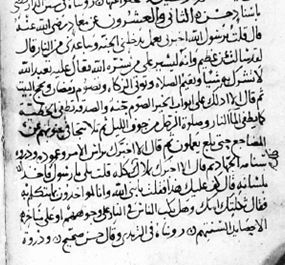 باسناد هذه الثاني والعشرون عن معاذ رضي الله عنه
قال قلت يرسول الله اخبرني بعمل يدخلني الجنة ويباعدني من النار قال
لقد سالت عن عظيم وانه ليسير على من يسره الله تعالى عليه تعبد الله
لا تشرك به شيا وتقيم الصلاة وتوتي الزكاة وتصوم رمضان وتحج البيت
ثم قال الا ادلك على ابواب الخير الصوم جنة والصدقة تطفي الخطيئة
كما يطفي الما النار وصلوة الرجل من جوف الليل ثم تلا تتجافى جنوبهم عن
المضاجع حتى بلغ يعملون ثم قال الا اخبرك براس الامر وعموده وذروة
سنامه الجهاد ثم قال الا اخبرك بملاك ذلك كله قلت بلى يارسول الله فاخذ
بلسانه قال كف عليك هذا فقلت يا نبي الله وانا لمواخذون بما نتكلم به
فقال ثكلتك امك وهل يكب الناس في النار على وجوههم او على مناخرهم
الا حصايد السنتهم رواه الترمذي وقال حسن صحيح وذروة